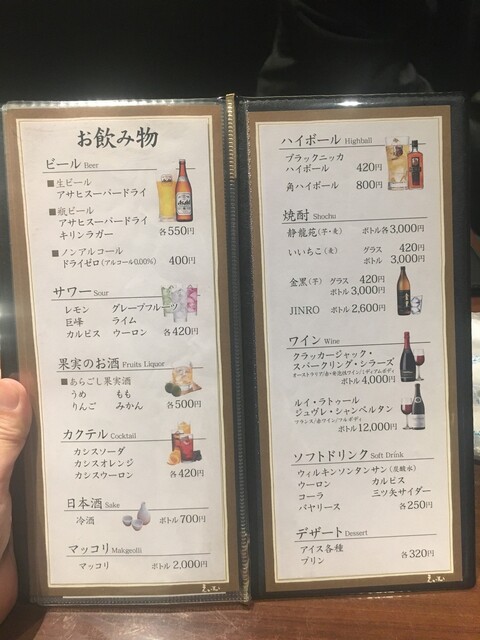 お飲み物
ビール Beer
■生ビール
アサヒスーパードライ
■瓶ビール
アサヒスーパードライ
キリンラガー 各550円
■ノンアルコール
ドライゼロ(アルコール0.00%) 400円
サワー Sour
レモン グレープフルーツ
巨峰 ライム
カルピス ウーロン 各420円
果実のお酒 Fruits Liquor
■あらごし果実酒
うめ もも
りんご みかん 各500円
カクテル Cocktail
カシスソーダ
カシスオレンジ
カシスウーロン 各420円
日本酒 Sake
冷酒 ボトル 700円
マッコリ Makgeolli
マッコリ ボトル 2,000円
ハイボール Highball
ブラックニッカ
ハイボール 420円
角ハイボール 800円
焼酎 Shochu
静龍苑(芋・麦) ボトル各 3,000円
いいちこ(麦) グラス 420円
ボトル 3,000円
金黒(芋) グラス 420円
ボトル 3,000円
JINRO ボトル 2,600円
ワイン Wine
クラッカージャック・
スパークリング・シラーズ
オーストラリア/赤・発泡性ワイン/ミディアムボディ
ボトル 4,000円
ルイ・ラトゥール
ジュヴレ・シャンベルタン
フランス/赤ワイン/フルボディ
ボトル 12,000円
ソフトドリンク Soft Drink
ウィルキンソンタンサン(炭酸水)
ウーロン カルピス
コーラ 三ツ矢サイダー
バヤリース 各250円
デザート Dessert
アイス各種
プリン 各320円